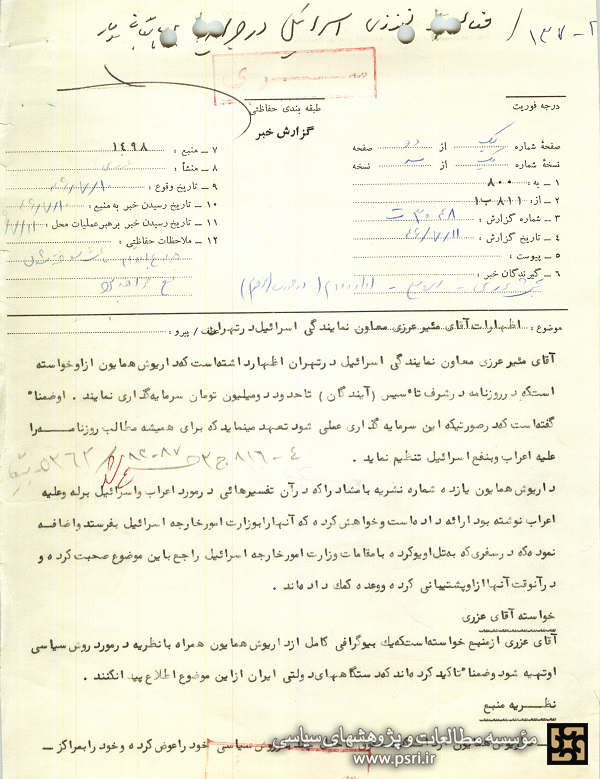 درجه فوریت
طبقه بندی حفاظتی
گزارش خبر
صفحهٔ شماره یک از دو صفحه
نسخهٔ شماره یک از سه نسخه
۱ – به : ۸۰۰
۲ – از : ۸۱۱ ب ۱
۳ – شماره گزارش :
۴ – تاریخ گزارش : ۴۶/۷/۱۱
۵ – پیوست :
۶ – گیرندگان خبر :
۷ – منبع : ۱۴۹۸
۸ – منشأ :
۹ – تاریخ وقوع : ۴۶/۷/۱۰
۱۰ – تاریخ رسیدن خبر به منبع : ۴۶/۷/۱۰
۱۱ – تاریخ رسیدن خبر برهبر عملیات محل :
۱۲ – ملاحظات حفاظتی :
موضوع : اظهارات آقای مئیر عزری معاون نمایندگی اسرائیل در تهران عطف / پیرو :
آقای مئیر عزری معاون نمایندگی اسرائیل در تهران اظهار داشته است که داریوش همایون از او خواسته
است که در روزنامه در شرف تاسیس (آیندگان) تا حدود دو میلیون تومان سرمایه گذاری نمایند . او ضمنا"
گفته است که در صورتیکه این سرمایه گذاری عملی شود تعهد مینماید که برای همیشه مطالب روزنامه را
علیه اعراب و بنفع اسرائیل تنظیم نماید .
داریوش همایون یازده شماره نشریه بامشاد را که در آن تفسیرهائی در مورد اعراب و اسرائیل بر له و علیه
اعراب نوشته بود ارائه داده است و خواهش کرده که آنها را بوزارت امور خارجه اسرائیل بفرستد و اضافه
نموده که در سفری که به تل اویو کرده با مقامات وزارت امور خارجه اسرائیل راجع باین موضوع صحبت کرده و
در آنوقت آنها از او پشتیبانی کرده و وعده کمک داده اند .
خواسته آقای عزری
آقای عزری از منبع خواسته است که یک بیوگرافی کامل از داریوش همایون همراه با نظریه در مورد روش سیاسی
او تهیه شود و ضمنا" تاکید کرده اند که دستگاههای دولتی ایران از این موضوع اطلاع پیدا نکنند .
نظریه منبع
روش سیاسی خود را عوض کرده و خود را بمراکز –
مؤسسه مطالعات و پژوهشهای سیاسی
www.psri.ir